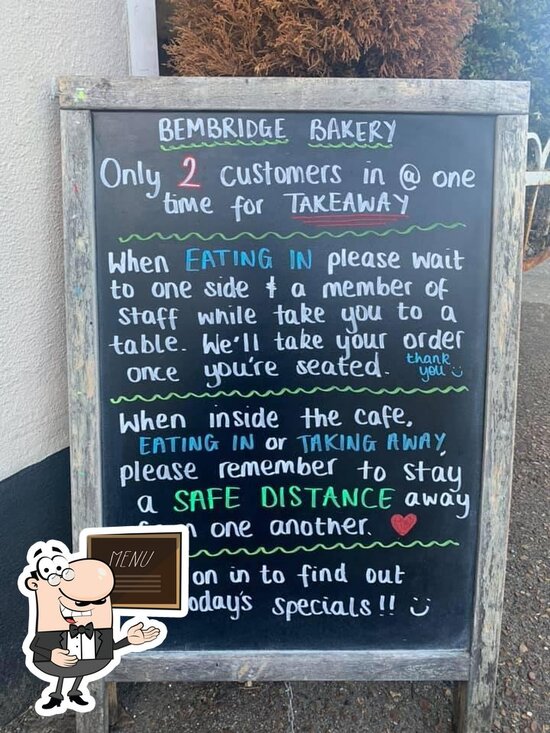 BEMBRIDGE BAKERY
Only 2 customers in @ one
time for TAKEAWAY
When EATING IN please wait
to one side & a member of
staff while take you to a
table. We'll take your order
once you're seated. thank
you
When inside the cafe,
EATING IN or TAKING AWAY,
please remember to stay
a SAFE DISTANCE away
one another.
on in to find out
oday's specials!!
MENU